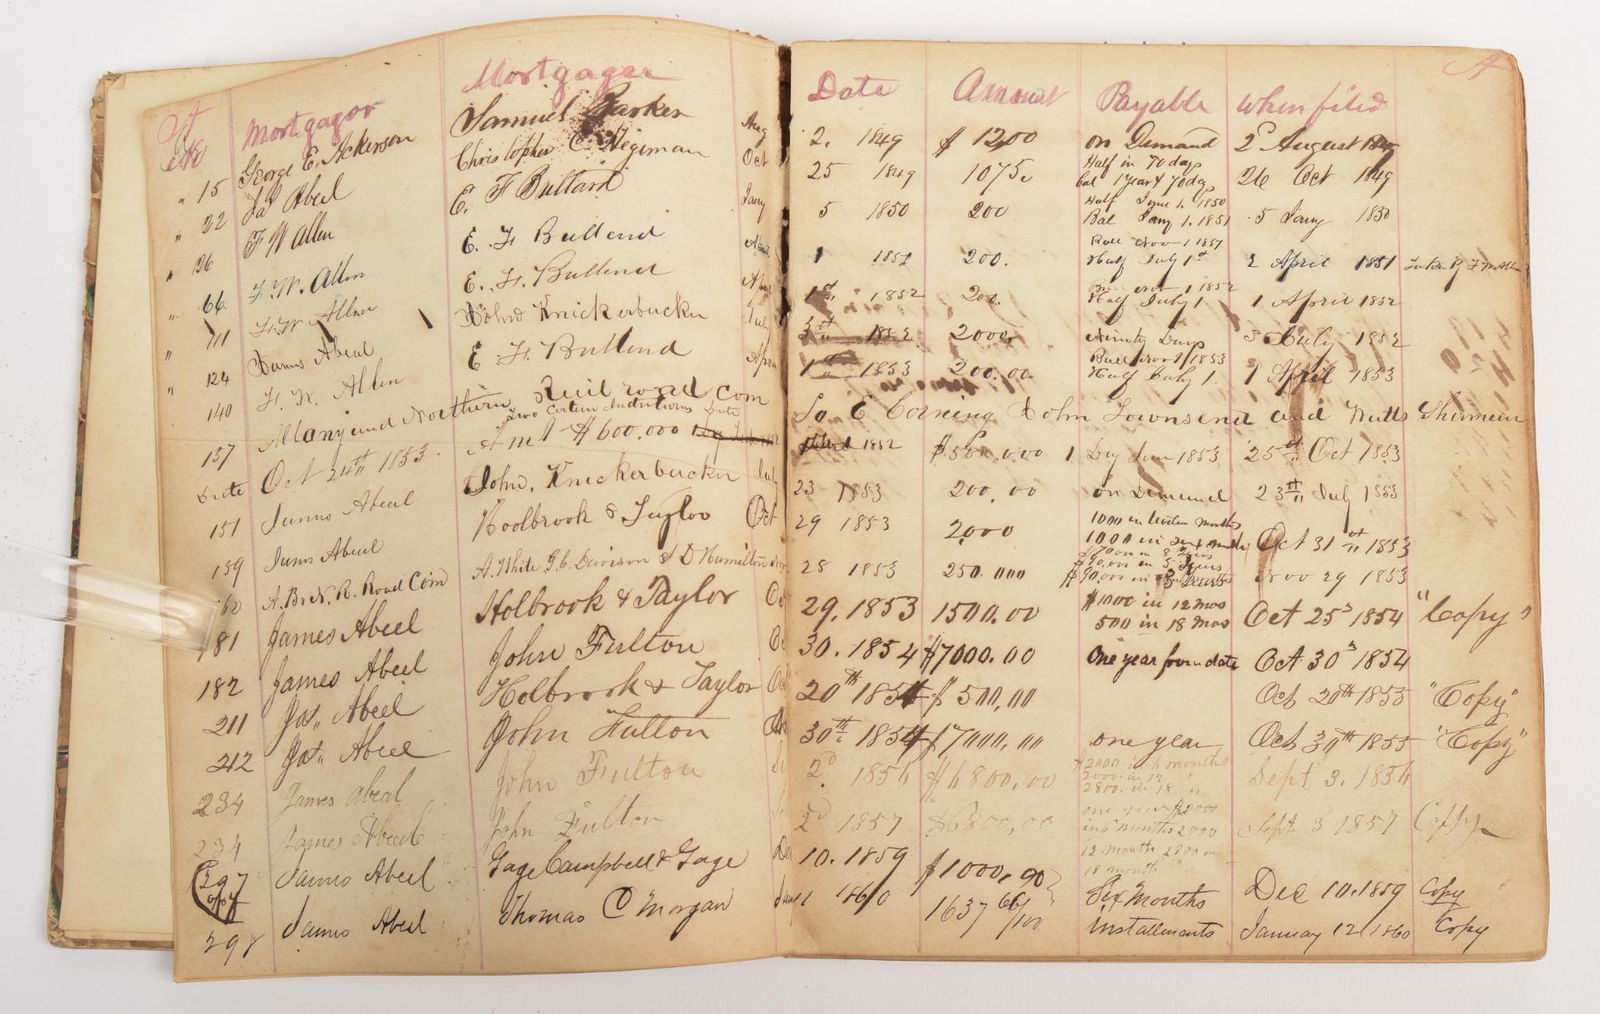 A
No Mortgagor Mortgagee Date Amount Payable when filed
" 15 George E. Ackerson Samuel Parker Aug 2. 1849 $ 1200 on Demand 2d August
" 22 Jas Abeel Christopher C. Hegeman Oct 25 1849 1075. Half in 70 days
bal 1 year & 70 dys 26 Oct 1849
" 26 F W Allen E. F Bullard Jany 5 1850 200 Half June 1. 1850
Bal Jany 1. 1851 5 Jany 1850
66 F. W. Allen E. F. Bullard 1 1851 200. Ball Nov 1 1851
Half July 1st 2 April 1851
" 111 F. W. Allen E. F. Bullard April 1st 1852 200. Nov 1 1852
Half July 1 1 April 1852
" 124 James Abeal John Knickerbucker July 3 1852 2000. Ninety Days 3 July 1852
140 F. W. Allen E F. Bullard April 1 1853 200.00 Ball Nov 1 1853
Half July 1. 1 April 1853
157 Albany and Northern Rail road Com To E Corning John Townsend and Watts Sherman
Date Oct 24th 1853. Two Certain Indentures Date
Amt $600.000 1852 $500.000 1 Day Jan 1853 25th Oct 1853
151 James Abeal John. Knickerbucker July 23 1853 200.00 on Demand 23 July 1853
159 James Abeal Hoolbrook & Taylor Oct 29 1853 2000 1000 in months
1000 in Oct 31st 1853
A. B & N. R. Road Com A. White G. C. Davison & D Hamilton Nov 28 1853 250.000 Nov 29 1853
181 James Abeel Holbrook & Taylor Oc 29. 1853 1500.00 $1000 in 12 mos
500 in 18 mos Oct 25 1854 "Copy"
182 James Abeel John Fulton Oc 30. 1854 $7000.00 One year from date Oct 30 1854
211 Jas. Abeel Holbrook & Taylor Oc 20th 1854 $ 500.00 Oct 20th 1855 "Copy"
212 Jas. Abeel John Fulton 30th 1854 $7000.00 one year Oct 30th 1855 "Copy"
234 James Abeal John Fulton 2d 1856 $6800.00 $2000 in 6 months
2000. in 12 "
2800. in 18 " Sept 3. 1856
234 James Abeel John Fulton 2d 1857 $6800.00 one year $2000
in 6 months 2000
12 months 2800
18 month Sept 3 1857 Copy
297 Copy James Abeel Gage Campbell & Gage De 10. 1859 $1000.90 Six Months Dec 10. 1859 Copy
298 James Abeel Thomas C Morgan Jan 11 1860 1637 66/100 Installments January 12 1860 Copy